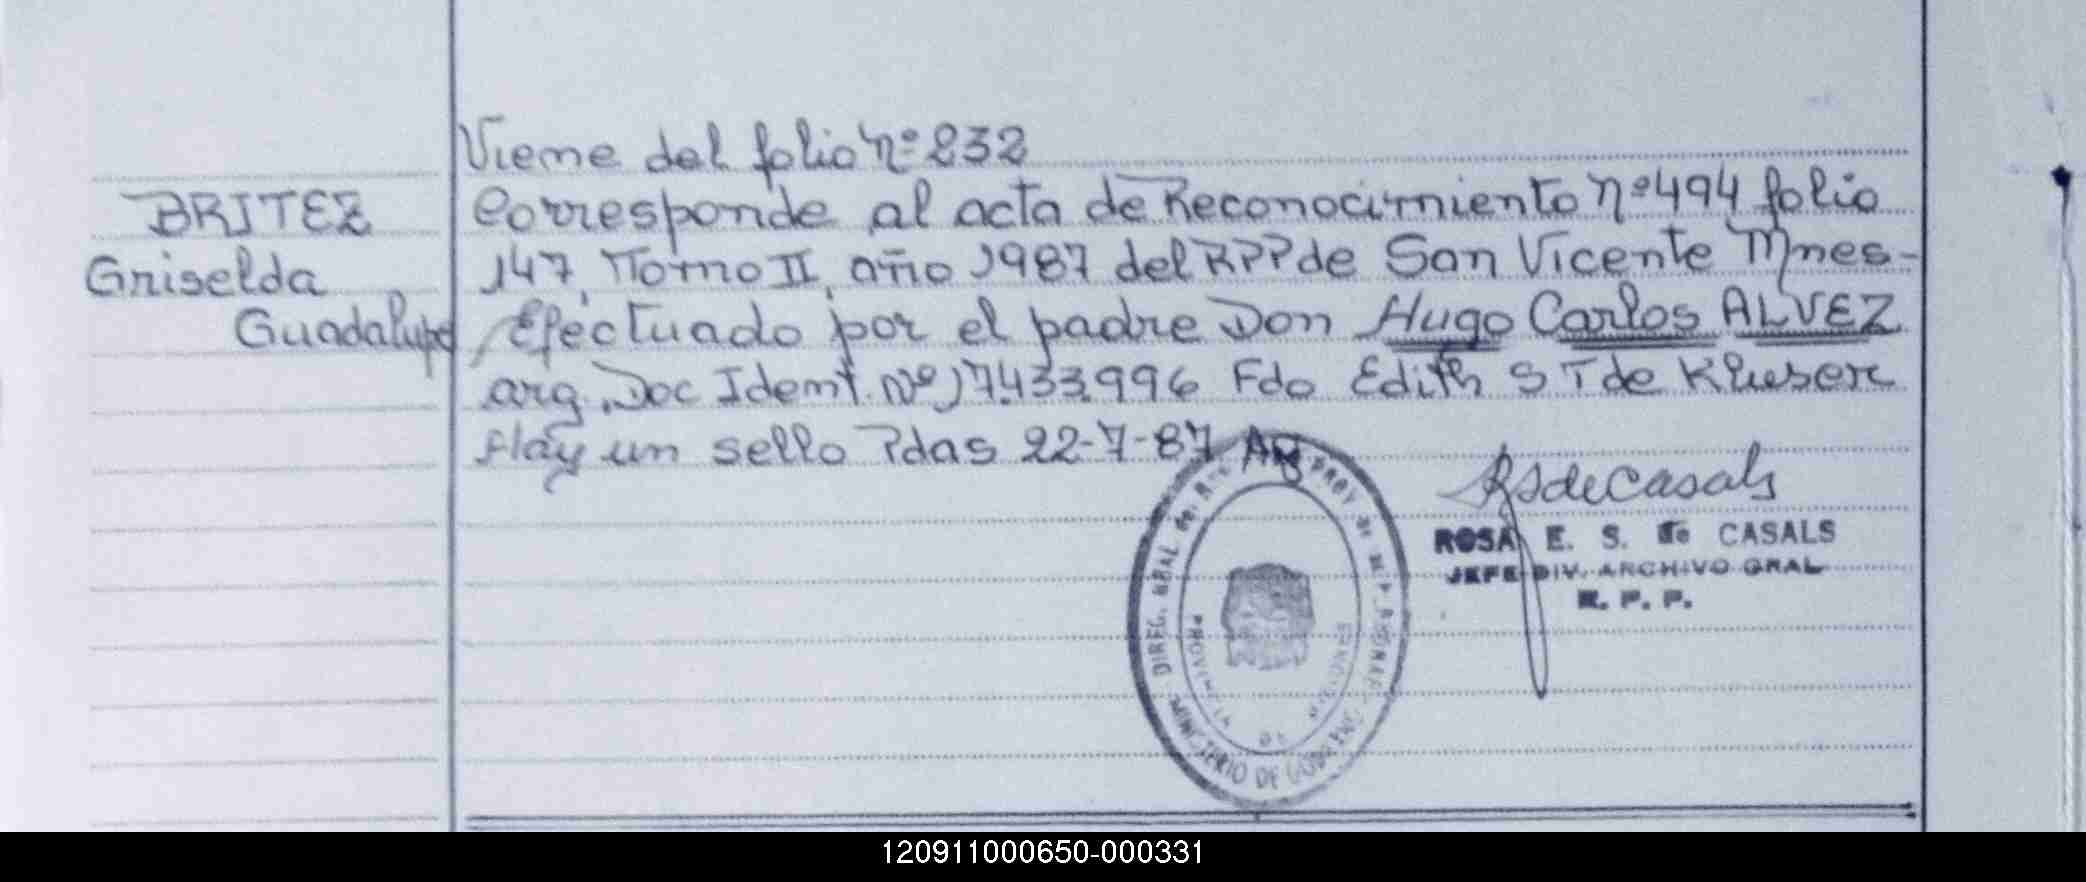 Viene del folio nº 232
BRITEZ Corresponde al acta de Reconocimiento nº 494 folio
Griselda 147, Tomo II, año 1987 del RPP de San Vicente Mnes-
Guadalupe Efectuado por el padre Don Hugo Carlos ALVEZ
arg. Doc Ident. Nº 17.433.996 Fdo Edith S T de Kluser
Hay un sello Pdas 22-7-87
RSdeCasals
ROSA E. S. de CASALS
JEFE DIV. ARCHIVO GRAL
R. P. P.
DIREC. GRAL de PROV. DE
PROVINCIA DE MISIONES
MINISTERIO DE GOBIERNO
120911000650-000331